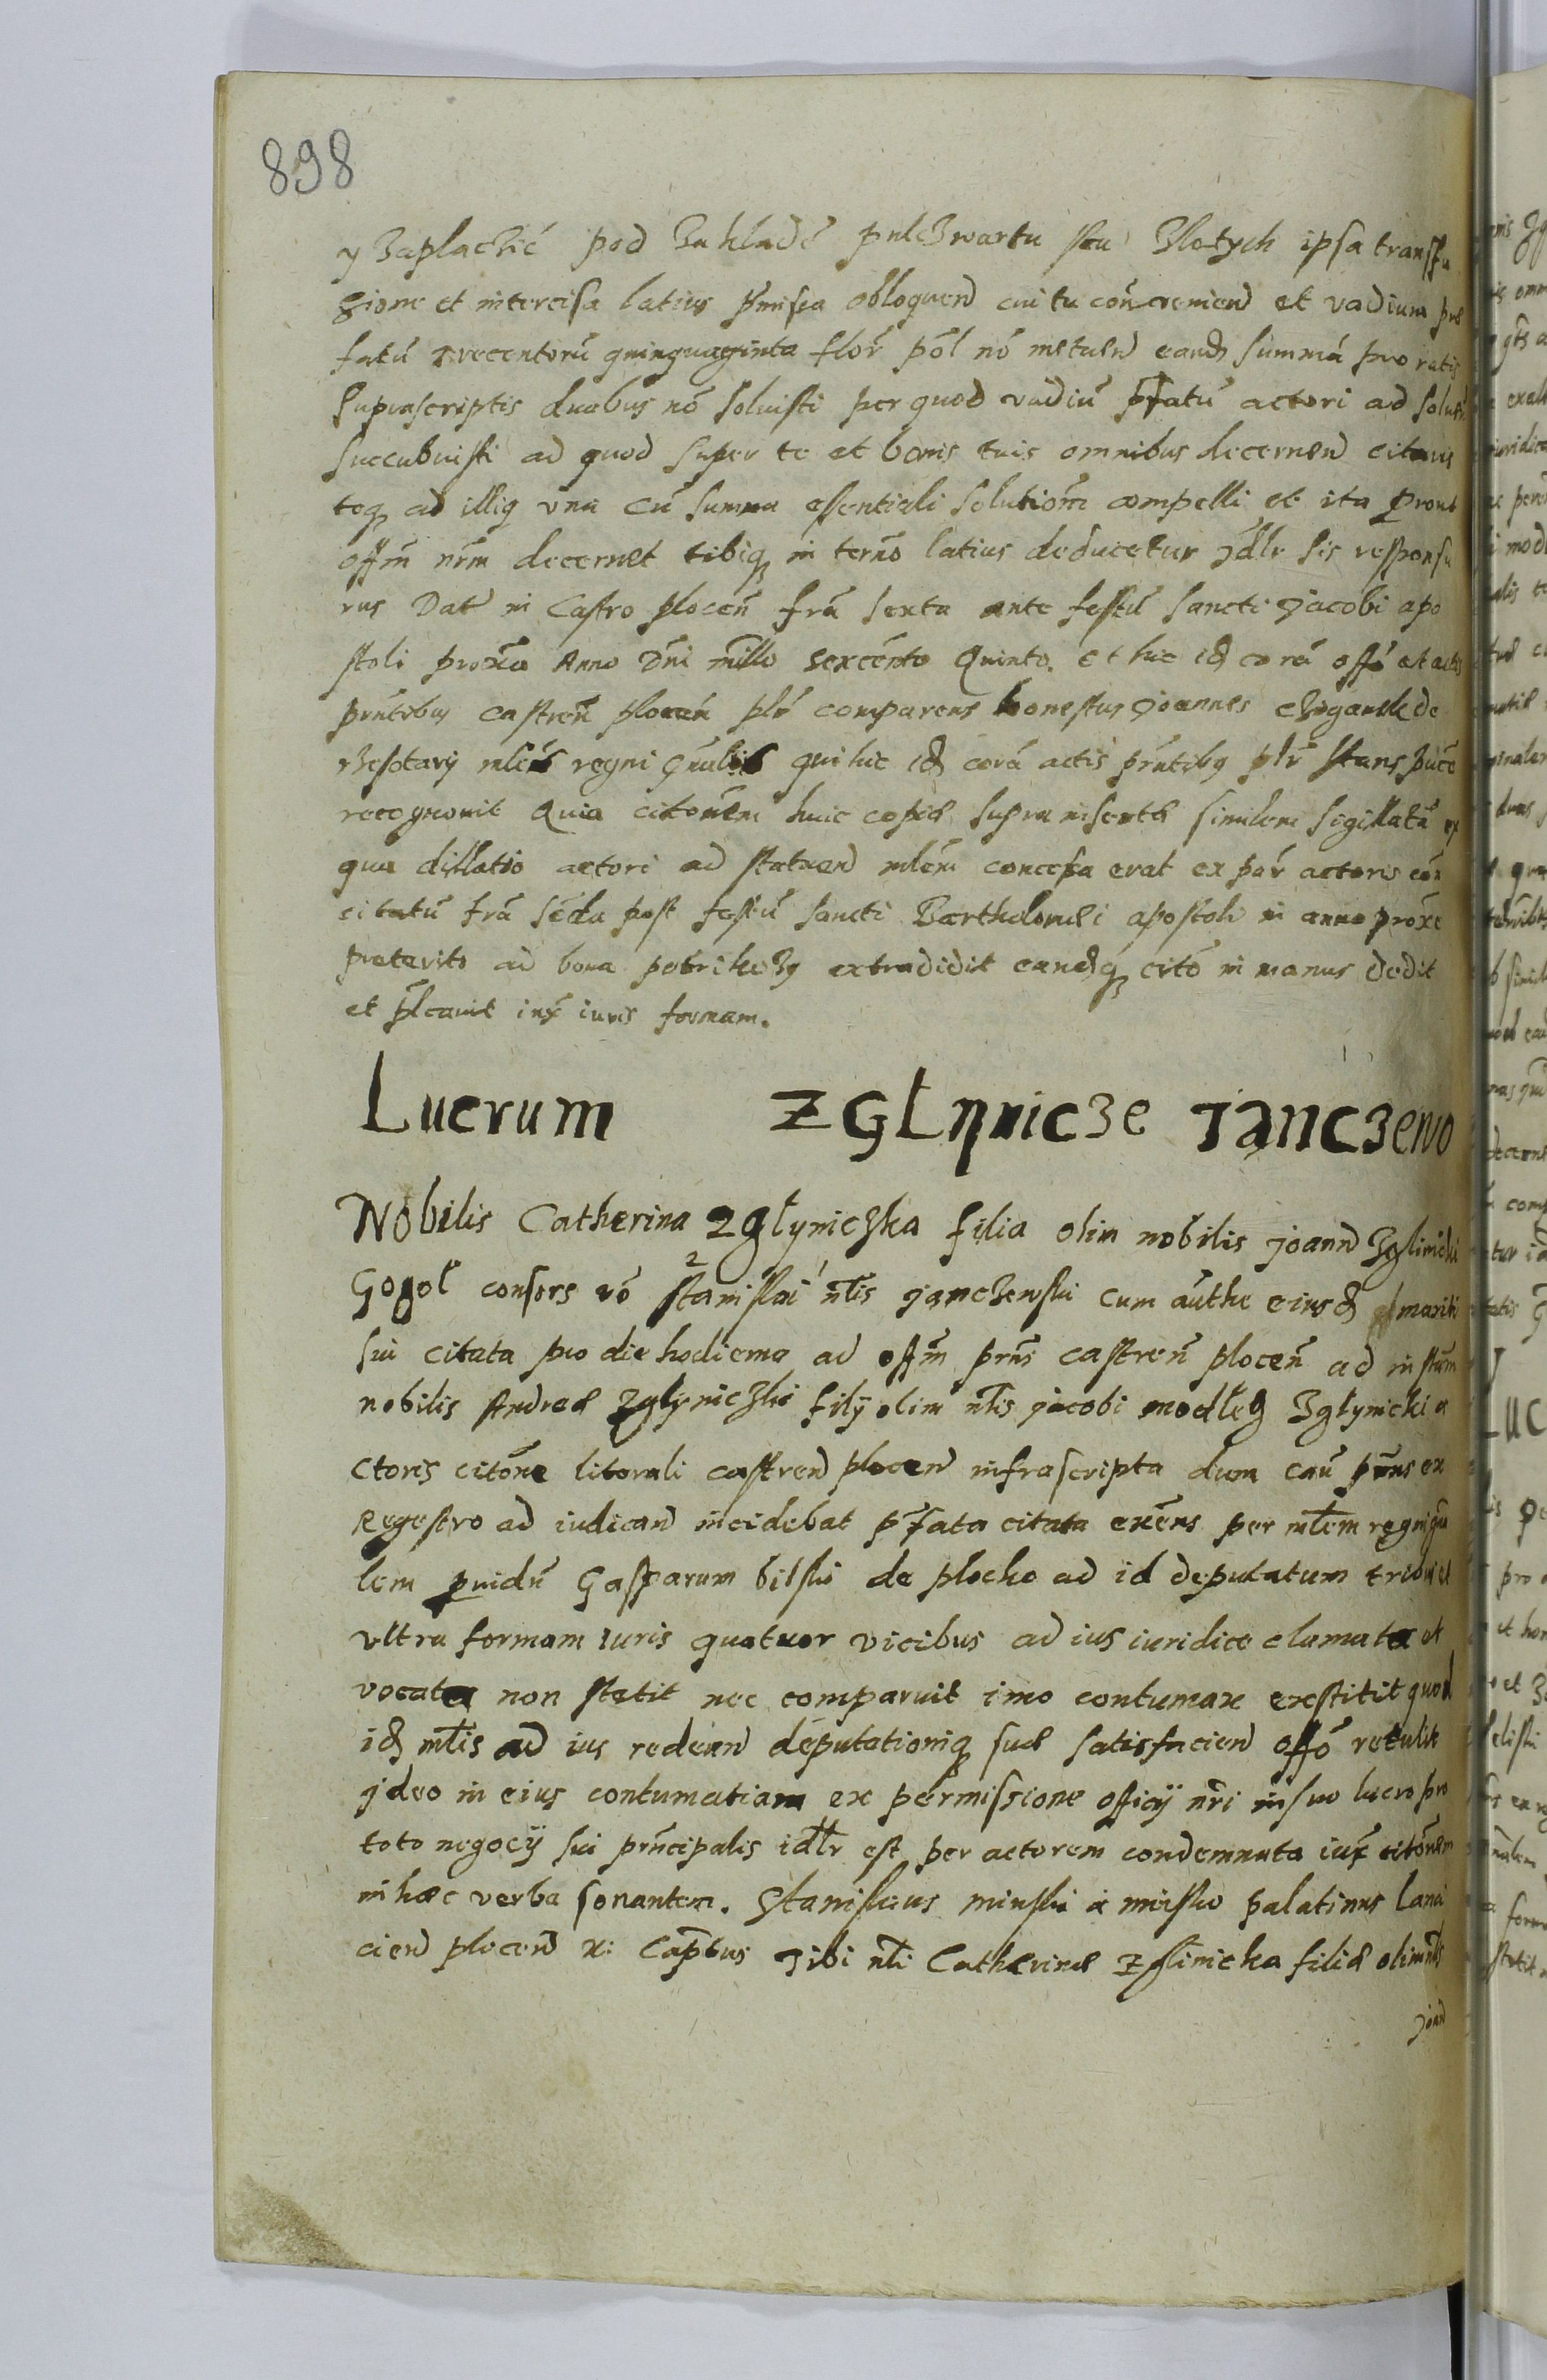 898
y zaplaczić pod zakładē pulczwartu stu Złotych ipsa transfu
gione et intercisa latius p̃missa obloquen̄ cui tu con̄travenien̄ et vadium prae
fatū trecentorū quinquaginta flor̃ pol̃ nō metuen̄ eand̃ summã pro ratis
suprascriptis duabus nõ solvisti per quod vadiū p̃fatū actori ad solven̄
succubuisti ad quod super te et bonis tuis omnibus decernen̄ citaris
teq3 ad illiq una cū summa essentiali solutiom̃ compelli et ita prout
offm̃ nrm̃ decernet tibiq3 in termõ latius deducetur Jdlr̃ sis responsu
rus Dat̃ in Castro plocen̄ fr̃a sexta ante festū sancti Jacobi apo
stoli proxa Anno Dn̄i millo sexcēnto Quinto. et huc id̃ corã offõ et actis
pr̄ntibus castren̄ plocen̄ plr̃ comparens honestus Joannes de
regni gn̄alis qui huc id̃ corã actis pr̄ntibq plr̃ stans
recognovit Quia citonem huic copiae supra insertae similem sigillatã ex
qua dillatio actori ad statuen̄ mlem̄ concessa erat ex par̃ actoris
citatū fr̃a sc̃da post festū sancti Bartholomei apostoli in anno proxe
praeterito ad bona petrikozy extradidit eandq3 citõ in manus dedit
et pl̃cavit iux̃ iuris formam.
Lucrum ZGLynicze Janczewo
Nobilis Catherina Zgłyniczka filia olim nobilis Joann̄ Zglinicki
Gogoł consors vō Stanislai nlis̄ Janczewski cum authe eiusd̃ mariti
sui citata pro die hodierna ad offm̃ prns̄ castren̄ plocen̄ ad instam̃
nobilis Andreae Zgłyniczki filij olim nlis̄ Jacobi modleg Zgłynicki a
ctoris citõne literali castren̄ plocen̄ infrascripta dum cau̇ prn̄s ex
Regestro ad iudican̄ incidebat p̃fata citata exens̃ per mlem̄ regni gn̄a
lem pvidū Gasparum bilski de plocko ad id deputatum trina et
ultra formam iuris quatuor vicibus ad ius iuridice clamata et
vocata non stetit nec comparuit imo contumax exstitit quod
id̃ mlis̄ ad ius redeun̄ deputationiq3 suae satisfacien̄ offõ retulit
Jdeo in eius contumatiam ex permissione officij nri̇ in suo lucro pro
toto negocij sui principalis idlr̃ est per actorem condemnata iux̃ citõnem
in hæc verba sonantem. Stanislaus minski a minsko palatinus Lanci
cien̄ plocen̄ x: Captbus Tibi nli̇ Catherinae Zglinicka filiae olim nlis̄
Joan̄